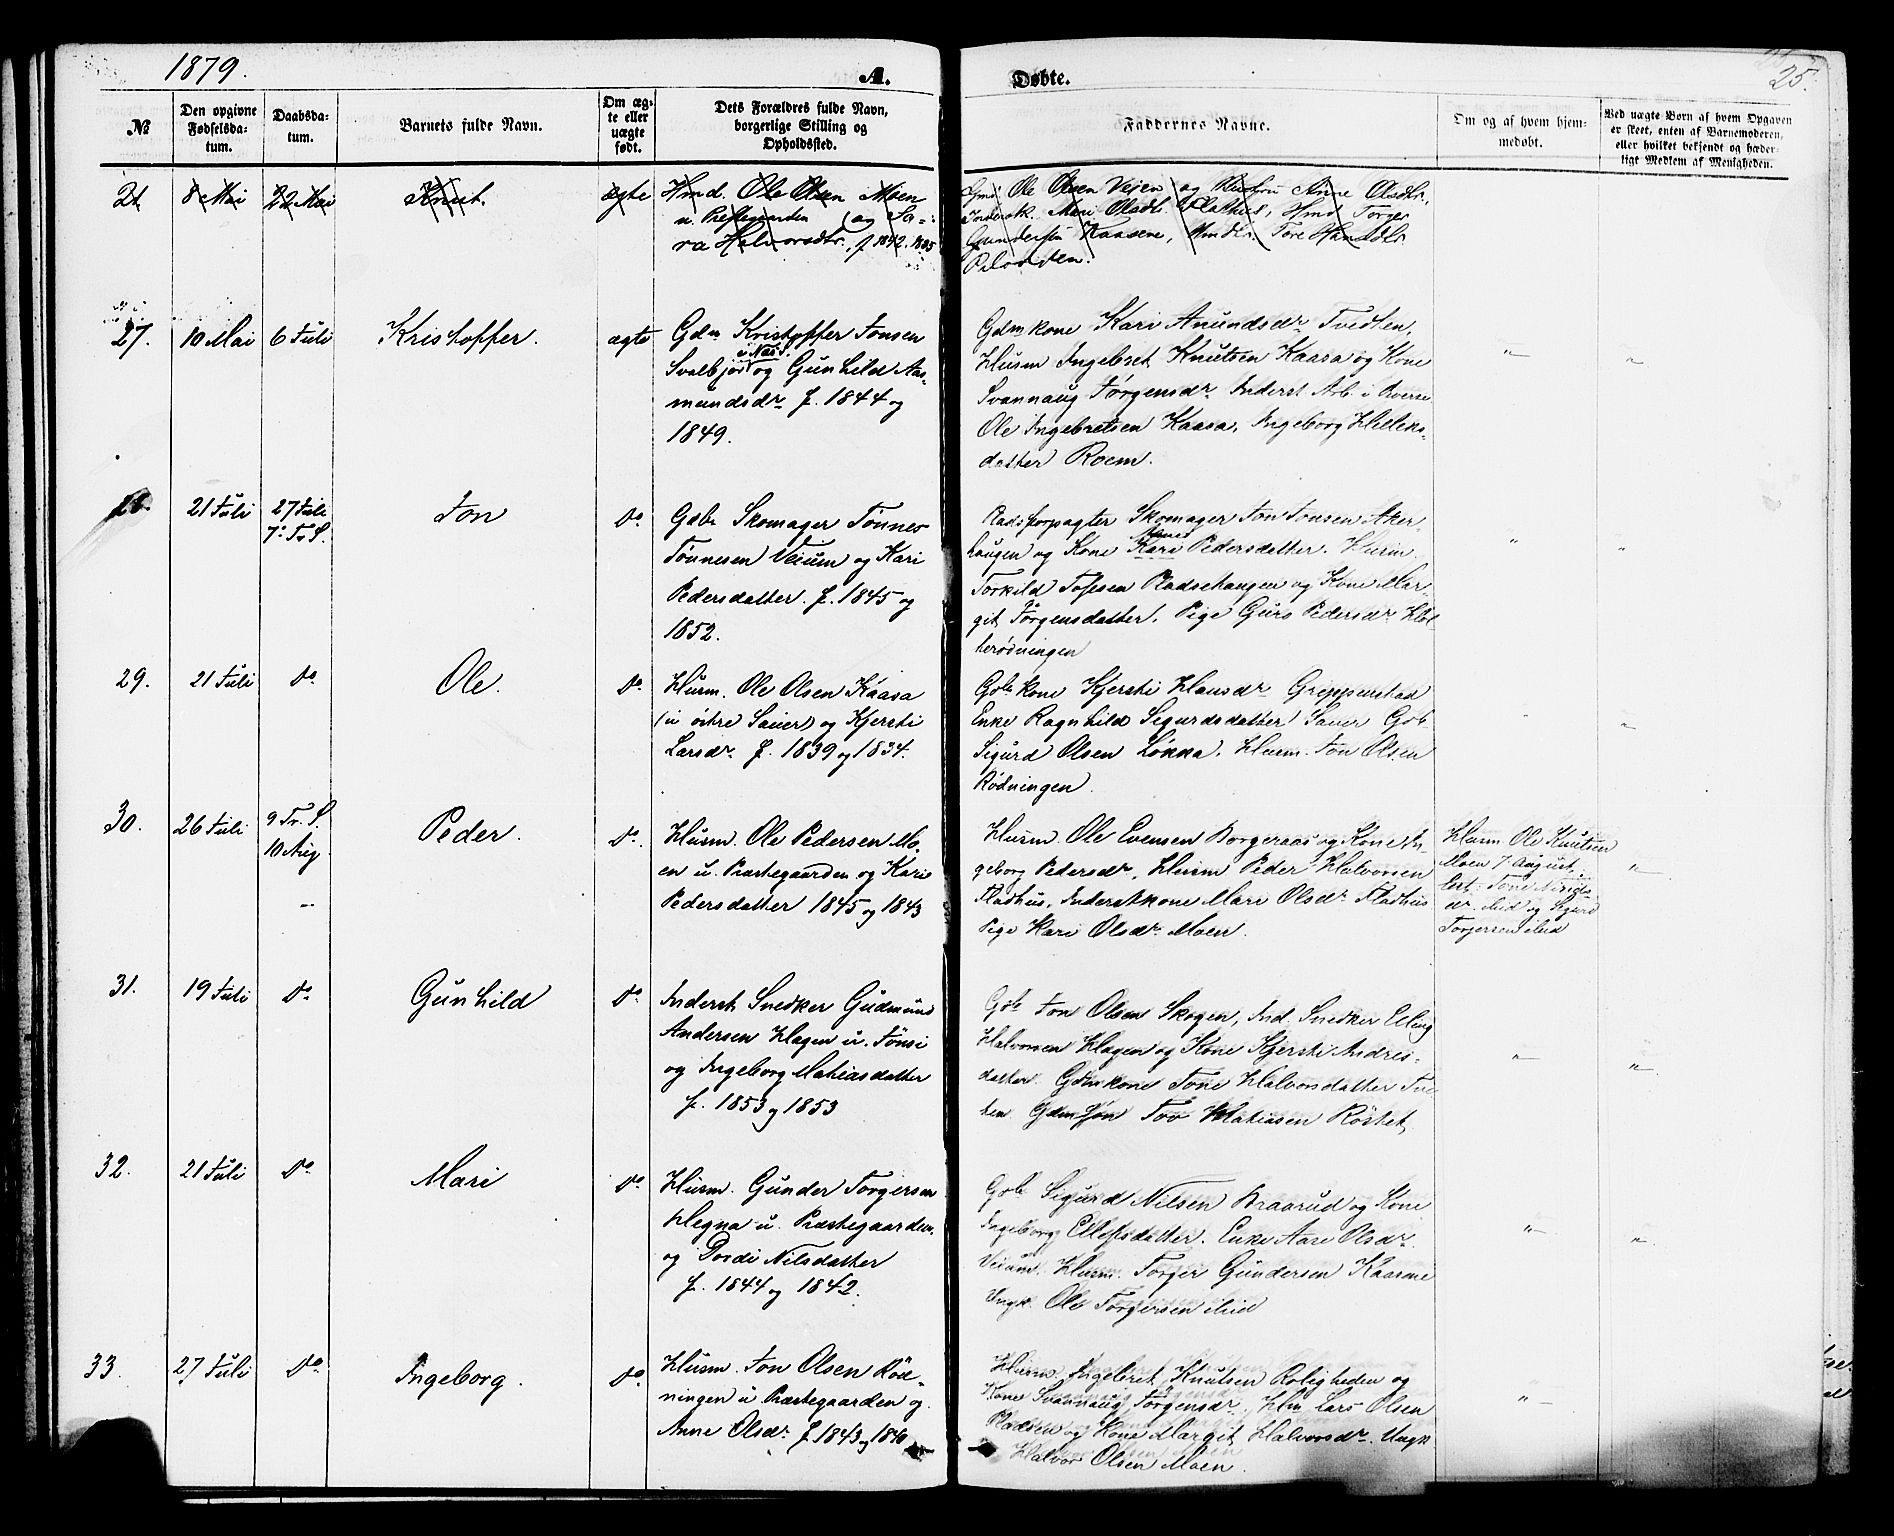 1879.
A.
Døbte.
25.
№
Den opgivne Fødselsdatum.
Daabsdatum.
Barnets fulde Navn.
Om ægte eller uægte født.
Dets Forældres fulde Navn, borgerlige Stilling og Opholdssted.
Faddernes Navne.
Om og af hvem hjemmedøbt.
Ved uægte Born af hvem Opgaven er skeet, enten af Barnemoderen, eller hvilket bekjendt og hæderligt Medlem af Menigheden.
21. 8 Mai 22 Mai Knut. ægte
Hmd. Ole Olsen Moen
u. Prestegaarden og Sa-
ra Halvorsdtr., f 1842. 1835
Gmd Ole Olsen Vejen og Anne Olsdtr,
Inderstk. Mari Olsdtr. Fladhus, Hmd Torger
Gundersen Kaasene, Tore
27. 10 Mai 6 Juli Kristoffer. ægte
Gdm Kristoffer Jonsen
i Næs.
Svalbjør og Gunhild Aas-
mundsdr f. 1844 og
1849.
Gdmkone Kari Anundsdr Tvedten,
Husm Ingebret Knutsen Kaasa og Kone
Svannaug Jørgensdr Inderst Arb. i
Ole Ingebretsen Kaasa, Ingeborg
datter Roem.
" "
28. 21 Juli 27 Juli Jon do
7: Tr. S.
Gdbr Skomager Tønnes
Tønnesen Veium og Kari
Pedersdatter. f. 1845 og
1852.
Pladsforpagter Skomager Jon Jonsen Aker-
haugen og Kone Kari Pedersdatter. Husm
Torkild Pladsehaugen og Kone Mar-
git Jørgensdatter. Pige Guro Pedersdr
" "
29. 21 Juli do Ole. do
Husm. Ole Olsen Kaasa
(u østre Sauer) og Kjersti
Larsdr f. 1839 og 1834.
Gbr kone Kjersti Hansdr
Enke Ragnhild Sigurdsdatter Sauer Gbr
Sigurd Olsen Løkka, Husm. Jon Olsen
Rødningen
" "
30. 26 Juli 9 Tr. S. Peder. do
10 Aug
Husm. Ole Pedersen Mo-
en u. Præstegaarden og Kari
Pedersdatter 1845 og 1843
Husm Ole Evensen Borgeraas og Kone In-
geborg Pedersdr, Husm Peder Halvorsen
Fladhus, Inderstkone Mari Olsdr Fladhus
Pige Kari Olsdr Moen.
Husm Ole Knutsen
Moen 7 August,
dr. ibid og Sigurd
Torjersen ibid
"
31. 19 Juli do Gunhild do
Inderst Snedker Gudmund
Andersen Hagen u. Tønsi
og Ingeborg Mathiasdatter
f. 1853 og 1853
Gbr Jon Olsen Skogen, Ind. Snedker Elling
Halvorsen Hagen og Kone Kjersti Andres-
datter Gdmkone Tone Halvorsdatter Tve-
ten. Gdmsøn Tov Mathiasen Røshet
" "
32. 21 Juli do Mari do
Husm. Gunder Torgersen
Hegna u. Præstegaarden
og Dordi Nilsdatter
f. 1844 og 1842.
Gbr Sigurd Nilsen Braarud og Kone
Ingeborg Ellefsdatter. Enke Aase Olsdr
Veium. Husm. Torger Gundersen Kaasene
Ungk. Ole Torgersen ibid
" "
33. 27 Juli do Ingeborg. do
Husm. Jon Olsen Rød-
ningen u Præstegaarden og
Anne Olsdr f 1843 og 1840
Husm. Ingebret Knutsen Roligheden og
Kone Svannaug Jørgensdr, Hm Lars Olsen
Pladsen og Kone Margit Halvorsdr. Ungk
Halvor Olsen Moen.
" "